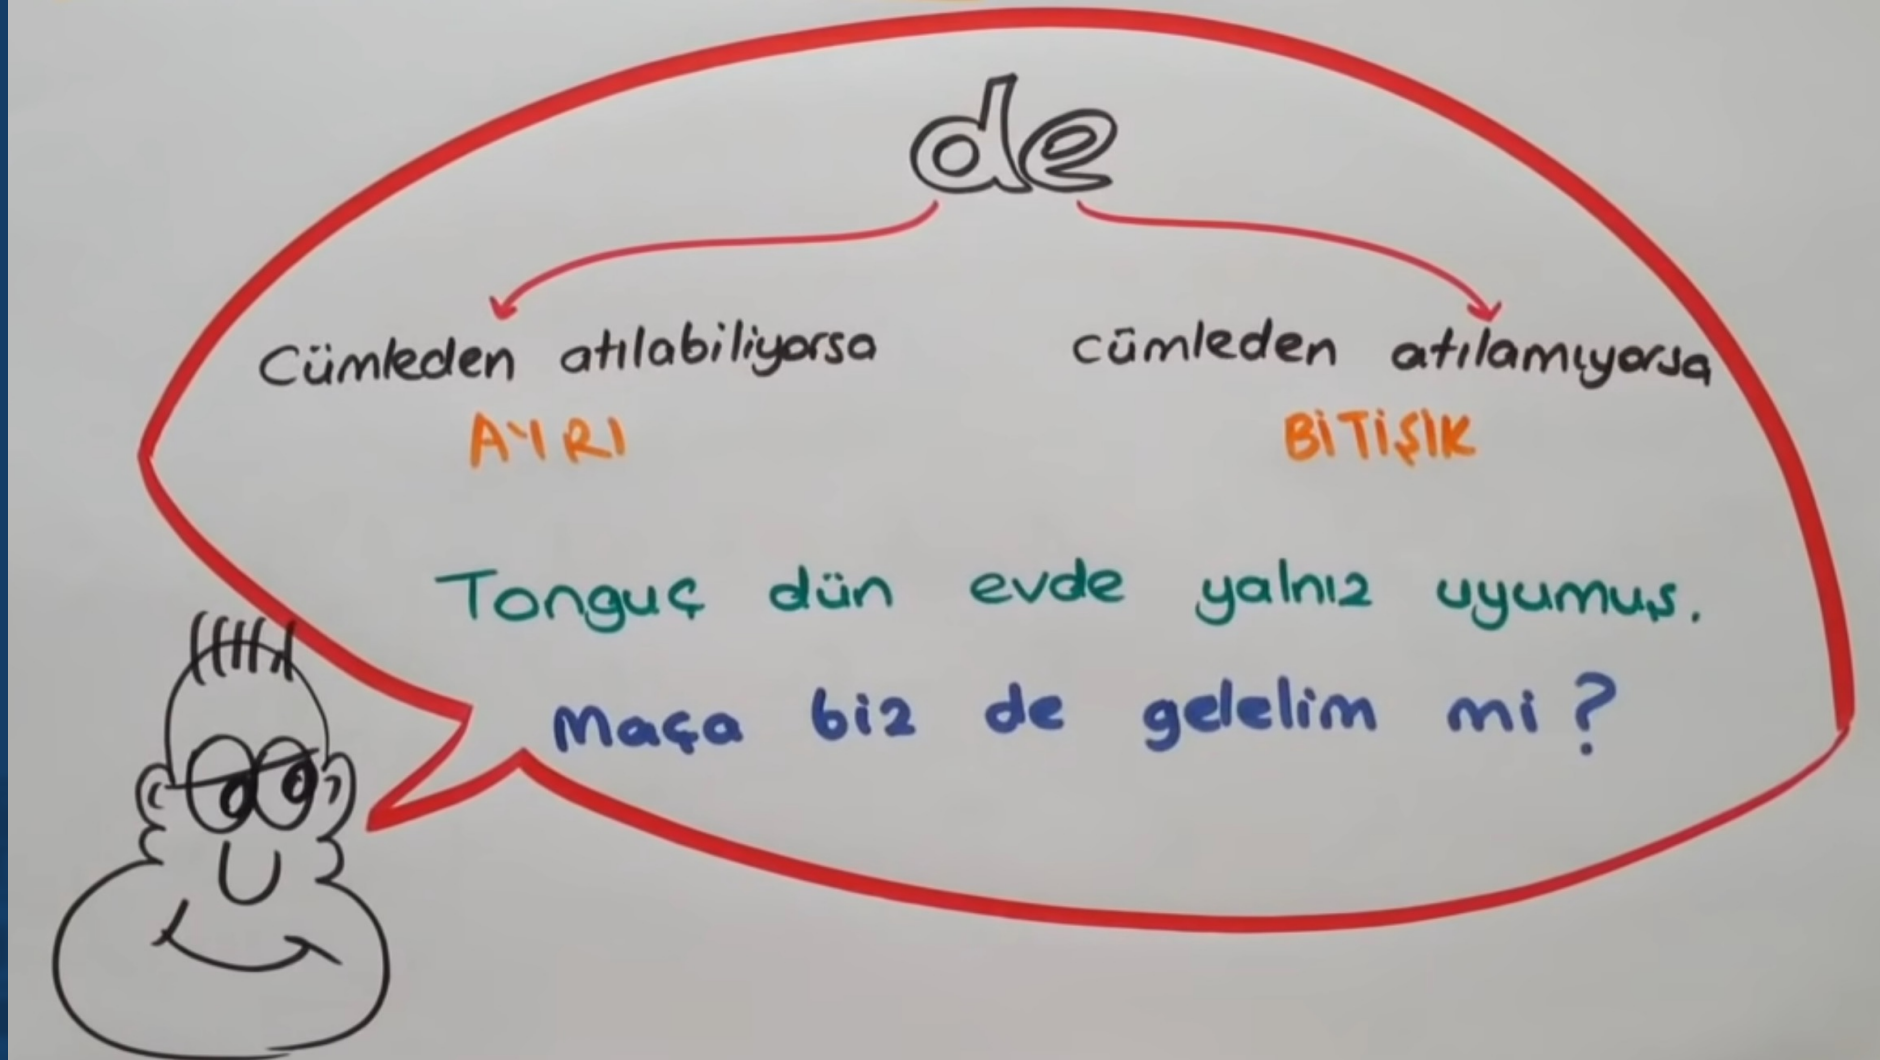 de
Cümleden atılabiliyorsa
AYRI
cümleden atılamıyorsa
BİTİŞİK
Tonguç dün evde yalnız uyumuş.
Maça biz de gelelim mi?